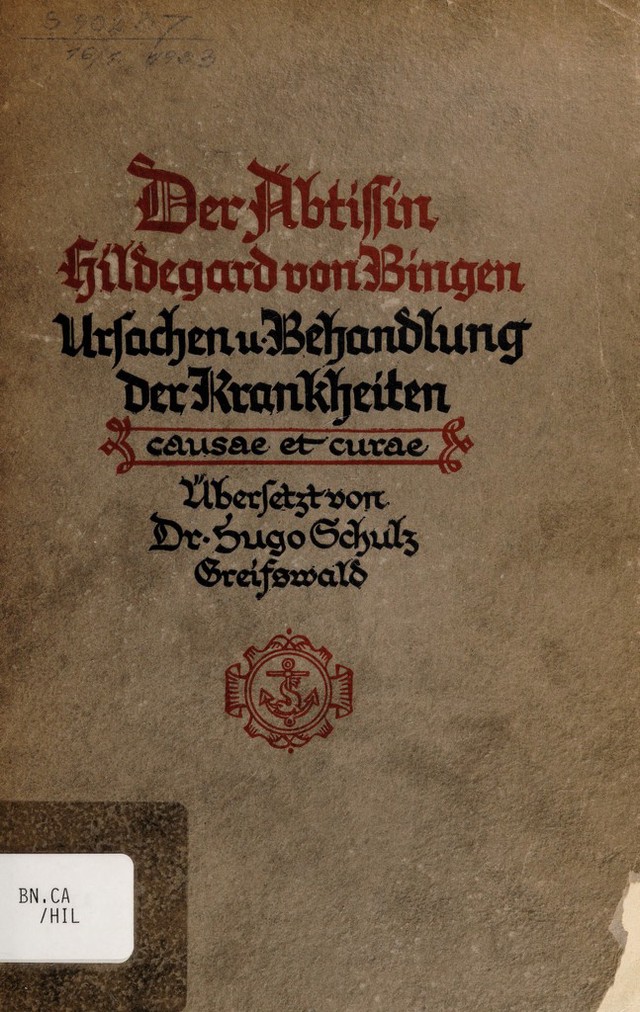 Der Äbtissin
Hildegard von Bingen
Ursachen u. Behandlung
der Krankheiten
causae et curae
Übersetzt von
Dr. Hugo Schulz
Greifswald
BN.CA
/HIL